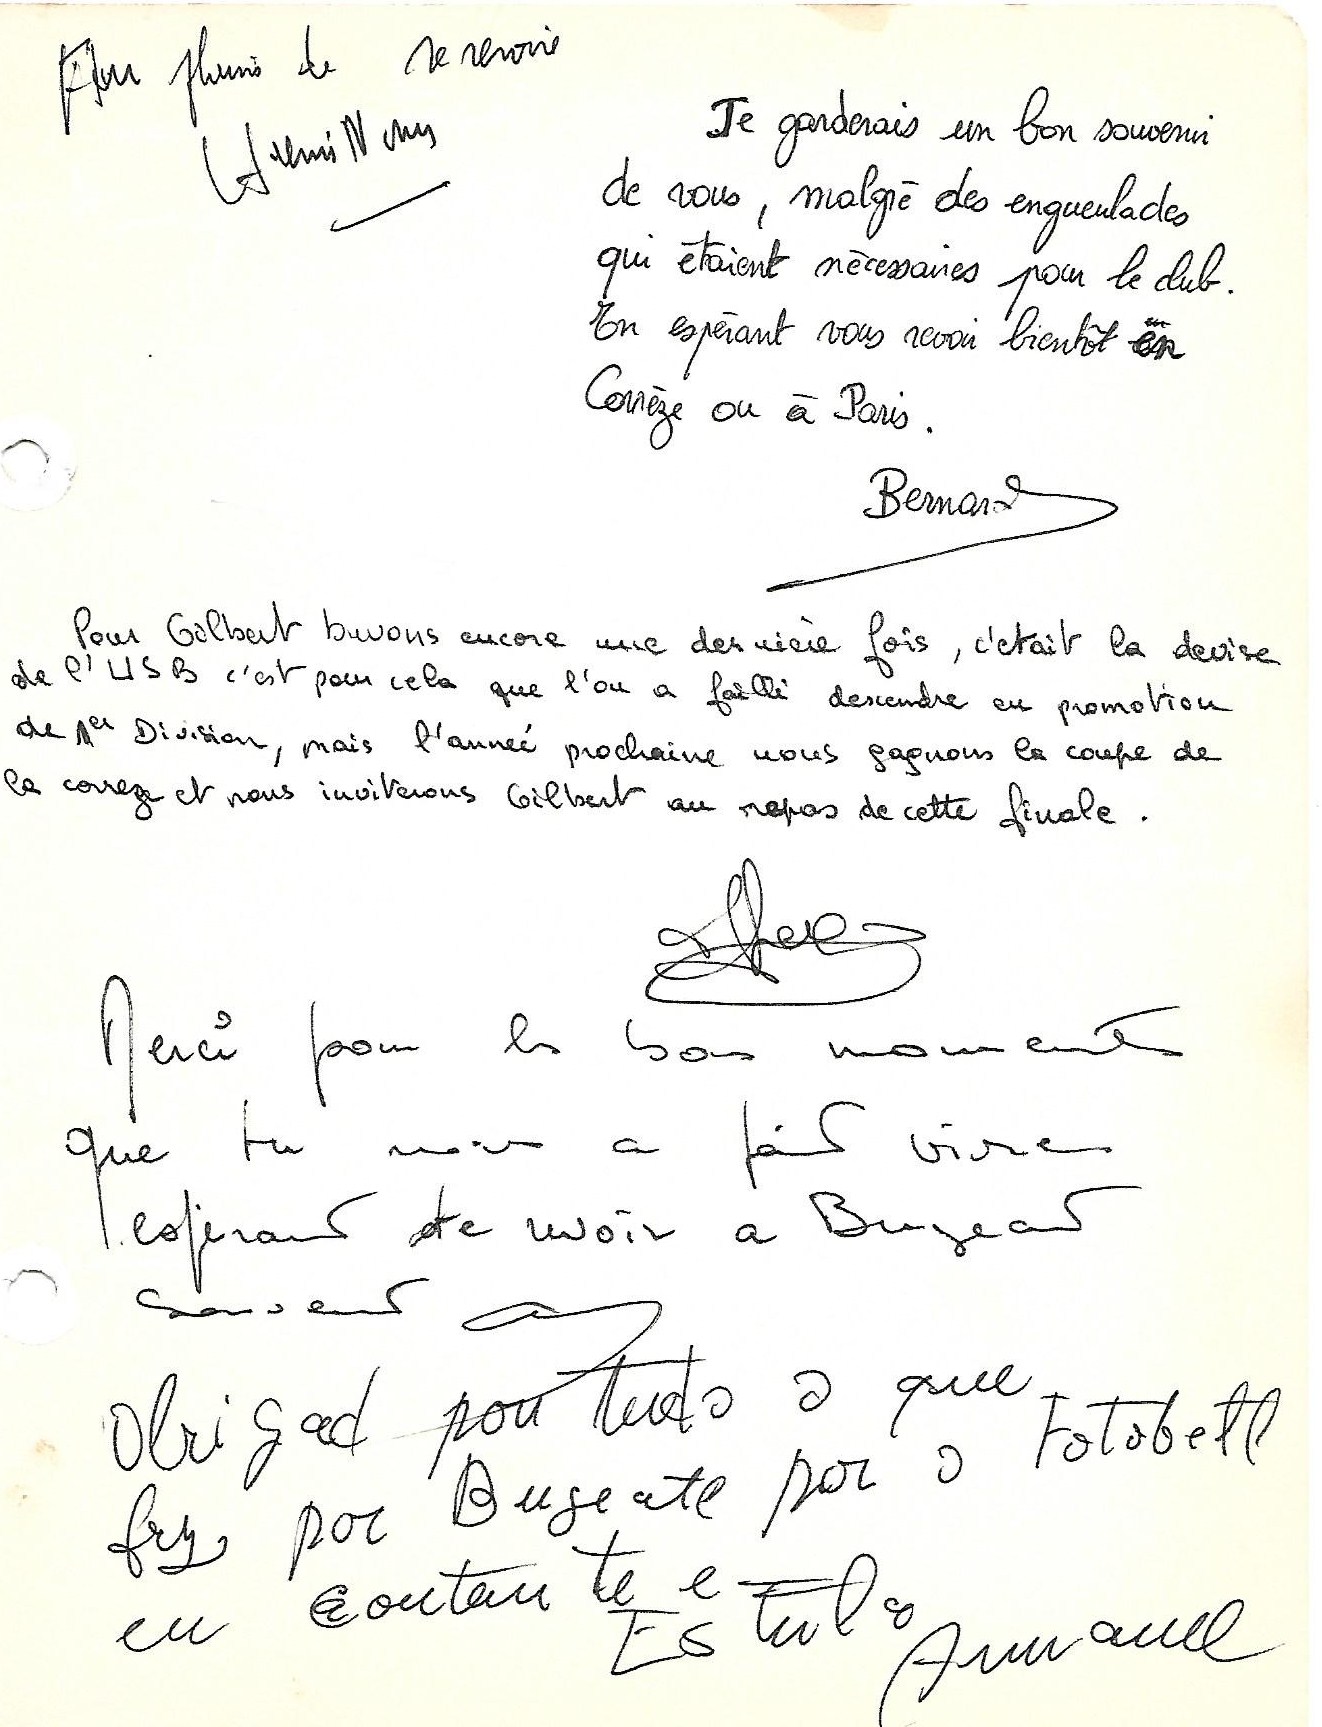 Au de te revoir
Je garderais un bon souvenir
de vous, malgré des engueulades
qui étaient nécessaires pour le club.
En espérant vous revoir bientôt en
Corrèze ou à Paris.
Bernard
Pour Gilbert buvons encore une dernière fois, c'était la devise
de l'USB c'est pour cela que l'on a failli descendre en promotion
de 1er Division, mais l'anneé prochaine nous gagnons la coupe de
la correze et nous inviterons Gilbert au repas de cette finale.
Merci pour les bons moments
que tu nous a fait vivre
esperant te revoir a Bugeat
souvent
Obrigad pou tudo o que
fez por Bugeate por o Fotobell
eu
Armanel